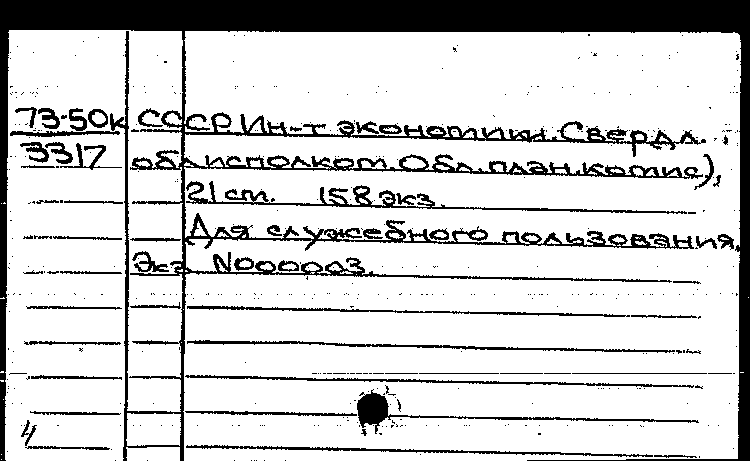 73-50к СССР Ин-т экономики. Свердл.
3317 облисполком. Обл. план. комис),
21 cm. 158 экз.
Для служебного пользования.
Экз N000003.
4